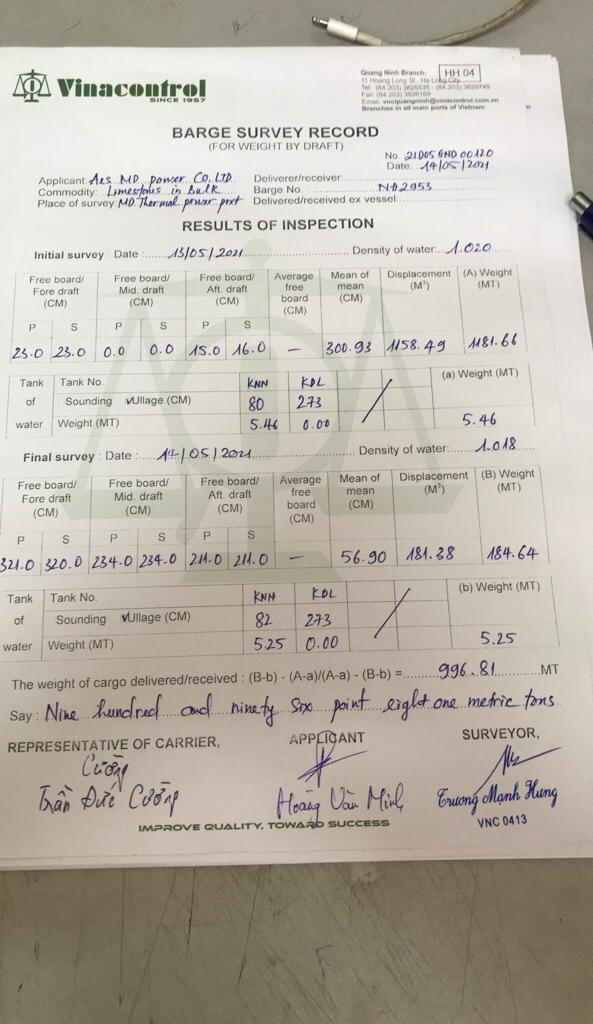 Vinacontrol
SINCE 1957
Quang Ninh Branch: HH 04
11 Hoang Long St., Ha Long City
Tel: (84.203) 3825535 - (84.203) 3829749
Fax: (84.203) 3826169
Email: vncquangninh@vinacontrol.com.vn
Branches in all main ports of Vietnam
BARGE SURVEY RECORD
(FOR WEIGHT BY DRAFT)
No. 21D05GND00120
Date: 14/05/2021
Applicant: AES MD power CO. LTD Deliverer/receiver:
Commodity: Limestons in Bulk Barge No.: ND2953
Place of survey: MD Thermal power port Delivered/received ex vessel:
RESULTS OF INSPECTION
Initial survey : Date : 13/05/2021 Density of water: 1.020
Free board/ Fore draft (CM) Free board/ Mid. draft (CM) Free board/ Aft. draft (CM) Average free board (CM) Mean of mean (CM) Displacement (M³) (A) Weight (MT)
P S P S P S
23.0 23.0 0.0 0.0 15.0 16.0 — 300.93 1158.49 1181.66
Tank Tank No. KNN KDL (a) Weight (MT)
of Sounding vUllage (CM) 80 273
water Weight (MT) 5.46 0.00 5.46
Final survey : Date : 14/05/2021 Density of water: 1.018
Free board/ Fore draft (CM) Free board/ Mid. draft (CM) Free board/ Aft. draft (CM) Average free board (CM) Mean of mean (CM) Displacement (M³) (B) Weight (MT)
P S P S P S
321.0 320.0 234.0 234.0 211.0 211.0 — 56.90 181.38 184.64
Tank Tank No. KNN KDL (b) Weight (MT)
of Sounding vUllage (CM) 82 273
water Weight (MT) 5.25 0.00 5.25
The weight of cargo delivered/received : (B-b) - (A-a)/(A-a) - (B-b) = 996.81 MT
Say : Nine hundred and ninety six point eight one metric tons
REPRESENTATIVE OF CARRIER, APPLICANT SURVEYOR,
Cường
Trần Đức Cường Hoàng Văn Minh Trương Mạnh Hùng
VNC 0413
IMPROVE QUALITY, TOWARD SUCCESS